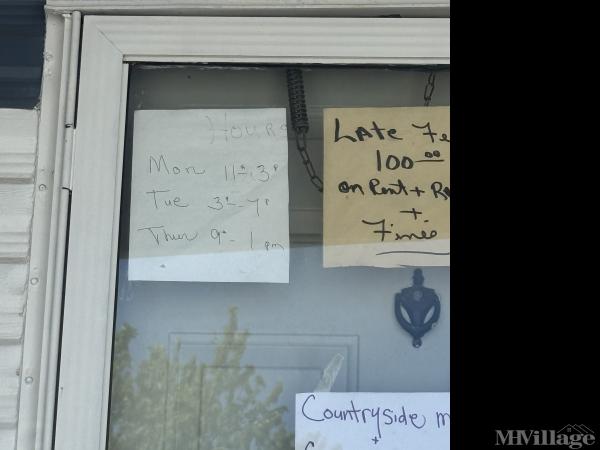 Hours
Mon 11ᵃ-3ᵖ
Tue 3ᵖ-7ᵖ
Thur 9ᵃ-1 pm
Late Fe
100.00
on Rent + Re
+
Fines
Countryside m
+
MHVillage